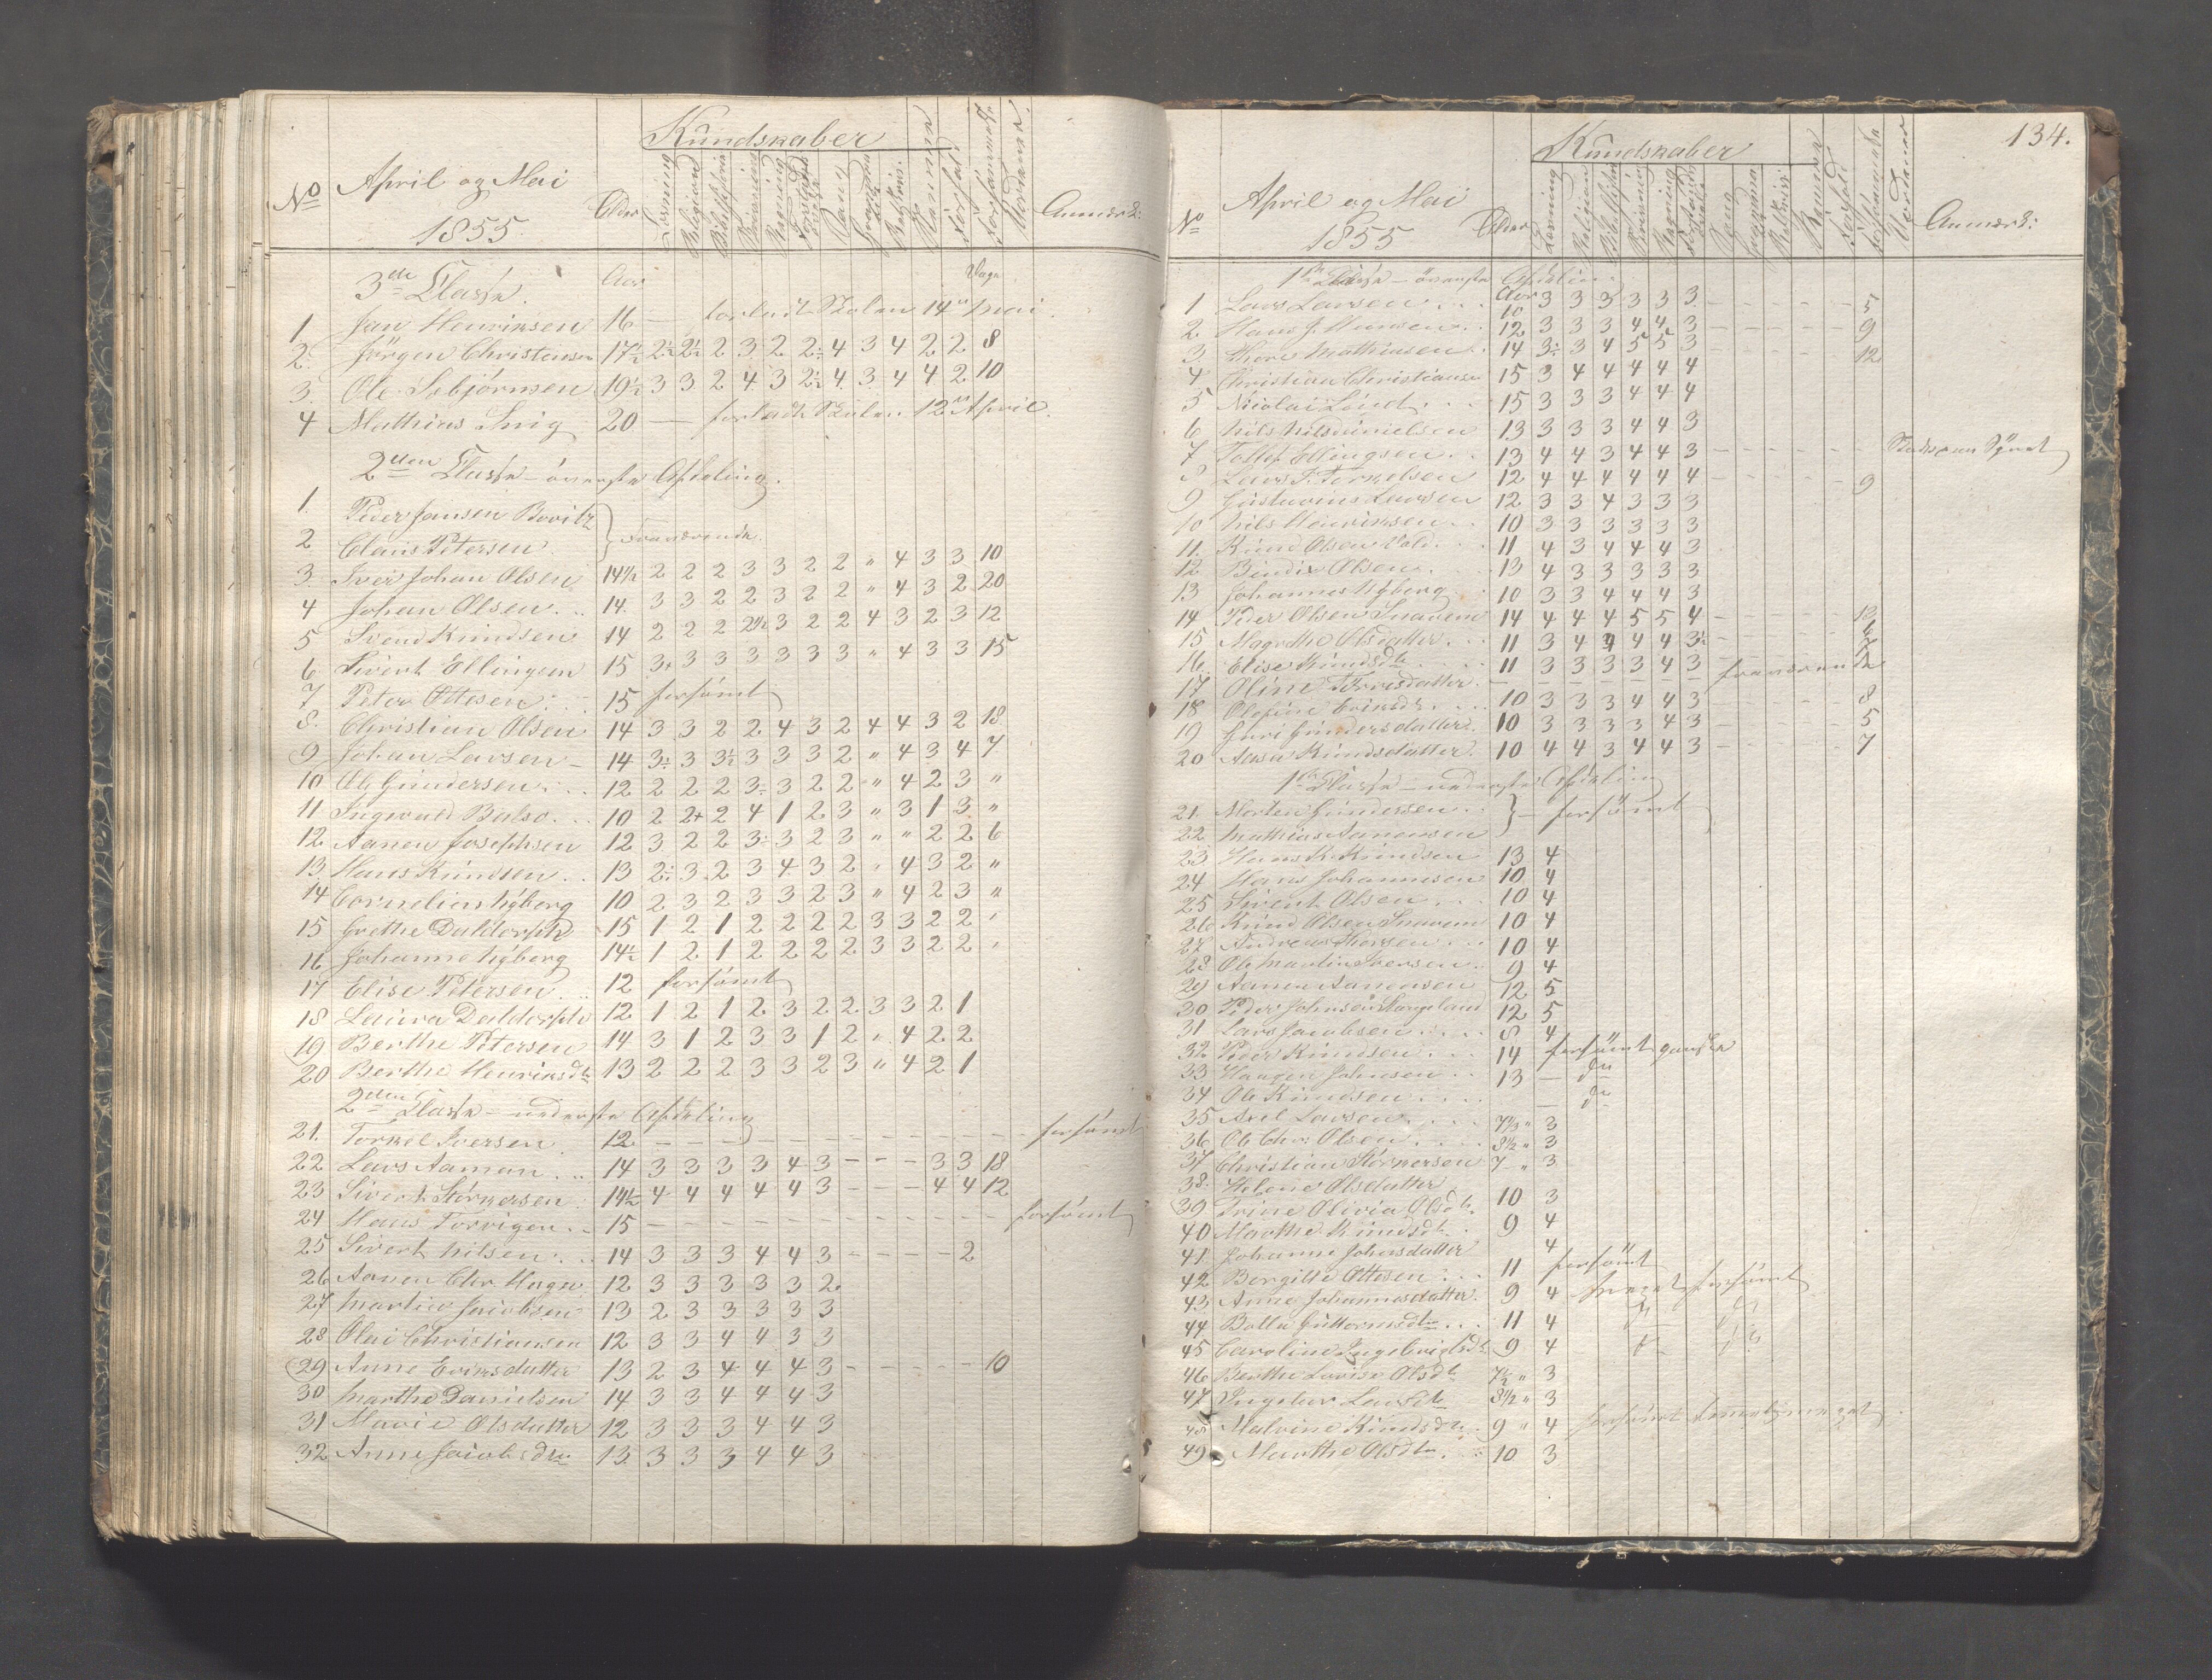 Kundskaber
No April og Mai 1855 Alder Læsning Religion Bibelhistorie Skrivning Regning Sang Anmærk:
3die Classe. Aar Dage
1 Jan Henriksen 16 — forladt Skolen 14de Mai.
2. Jörgen Christensen 17½ 2½ 2½ 2 3 2 2½ 4 3 4 2 2 8
3. Ole Asbjörnsen 19½ 3 3 2 4 3 2½ 4 3 4 4 2 10
4 Mathias 20 — forladt Skolen 12te April.
2den Classe – överste Afdeling.
1. Peder Jansen
2 Claus Petersen } fraværende.
3. Iver Johan Olsen 14½ 2 2 2 3 3 2 2 " 4 3 3 10
4 Johan Olsen 14. 3 3 2 2 3 2 2 " 4 3 2 20
5 Svend Knudsen 14 2 2 2 2½ 3 2 2 4 3 2 3 12
6 Sivert Ellingsen 15 3+ 3 3 3 3 3 3 " 4 3 3 15
7 Peter Ottesen 15 forsömt
8. Christian Olsen 14 3 3 2 2 4 3 2 4 4 3 2 18
9 Johan Larsen – 14 3÷ 3 3½ 3 3 3 2 " 4 3 4 7
10 Ole Gundersen 12 2 2 2 3÷ 3 2 2 " 4 2 3 "
11 Ingvald 10 2 2+ 2 4 1 2 3 " 3 1 3 "
12. Aanen Josephsen 12 3 2 2 3÷ 3 2 3 " " 2 2 6
13. Hans Knudsen 13 2÷ 3 2 3 4 3 2 " 4 3 2 "
14 Cornelius Nyberg 10 2 3 2 3 3 2 3 " 4 2 3 "
15 Grethe Daldorph 15 1 2 1 2 2 2 2 3 3 2 2 '
16 Johanne Nyberg 14½ 1 2 1 2 2 2 2 3 3 2 2 '
17 Elise Petersen 12 forsömt
18 Laura Daldorph 12 1 2 1 2 3 2 2 3 3 2 1
19 Berthe Petersen 14 3 1 2 3 3 1 2 " 4 2 2
20 Berthe Henriksdtr 13 2 2 2 3 3 2 3 " 4 2 1
2den Classe – nederste Afdeling
21. Torkel Iversen 12 – – – – – – – – – – – – forsömt
22 Lars Aamon 14 3 3 3 3 4 3 – – – 3 3 18
23 Sivert Störkersen 14½ 4 4 4 4 4 3 – – – 4 4 12
24 Hans 15 – – – – – – – – – – – – forsömt
25 Sivert Nilsen 14 3 3 3 4 4 3 – – – – 2
26 Aanen Chr 12 3 3 3 3 3 2
27 Martin Jacobsen 13 2 3 3 3 3 3
28 Olai Christiansen 12 3 3 4 4 3 3
29 Anne Eriksdatter 13 2 3 4 4 4 3 – – – – – 10
30 Marthe Danielsen 14 3 3 4 4 4 3
31 Marie Olsdatter 12 3 3 3 4 4 3
32 Anne Jacobsdtr 13 3 3 3 4 4 3
134.
Kundskaber
No April og Mai 1855 Alder Læsning Religion Bibelhistorie Skrivning Regning Sang Anmærk:
1ste Classe – överste Afdeling
1 Lars Larsen Aar 10 3 3 3 3 3 3 – – – – – 5
2 Hans J. Hansen 12 3 3 3 4 4 3 – – – – – 9
3. Thore Mathiasen 14 3÷ 3 4 5 5 3 – – – – – 12
4 Christian Christiansen 15 3 4 4 4 4 4
5 Nicolai Lund 15 3 3 3 4 4 4
6 Nils 13 3 3 3 4 4 3
7 Tollef Ellingsen 13 4 4 3 4 4 3 – – – – –
8 Lars T. Torkelsen 12 4 4 4 4 4 4 – – – – – 9
9 Gustavius Larsen 12 3 3 4 3 3 3
10 Nils Henriksen 10 3 3 3 3 3 3
11. Knud Olsen Vold 11 4 3 4 4 4 3
12 Bendix Olsen 13 4 3 3 3 3 3
13 Johannes Nyberg 10 3 3 4 4 4 3
14 Peder Olsen 14 4 4 4 5 5 4 – – – – – 12
15 Magrethe Olsdatter 11 3 4 4 4 4 3½
16. Elise Knudsdtr 11 3 3 3 3 4 3
17 Oline Torrisdatter – – – – – – – fraværende
18 Olefine 10 3 3 3 4 4 3 – – – – – 8
19 Guri Gundersdatter 10 3 3 3 3 4 3 – – – – – 5
20 Aasa Knudsdatter 10 4 4 3 4 4 3 – – – – – 7
1ste Classe – nederste Afdeling
21 Morten Gundersen
22 Mathias Aanensen } – forsömt
23 Hans K. Knudsen 13 4
24 Hans Johannesen 10 4
25 Sivert Olsen 10 4
26 Knud Olsen 10 4
27 Andreas Thorsen 10 4
28 Ole Martin Iversen 9 4
29 Aanen Aanensen 12 5
30 Peder Johnsen Stangeland 12 5
31 Lars Jacobsen 8 4
32 Peder Knudsen 14 forsömt ganske
33 Haagen Johnsen 13 – do
34 Ole Knudsen – do
35 Axel Larsen 7½ " 3
36 Ole Chr: Olsen 8½ " 3
37 Christian Störkersen 7 " 3
38. Helene Olsdatter
39 Trine Olivia Olsdtr 10 3
40 Marthe Knudsdtr 9 4
41 Johanne Johnsdatter 4
42 Bergitte Ottesen 11 forsömt
43 Anne Johannesdatter 9 4 meget forsömt
44 Bolla Guttormsdtr 11 4
45 Caroline Ingebrigtsdtr 9 4
46 Berthe Lovise Olsdtr 7½ " 3
47 Ingebor Larsdtr 8½ " 3
48 Malvine Knudsdtr 9 " 4 forsömt
49 Marthe Olsdtr 10 3